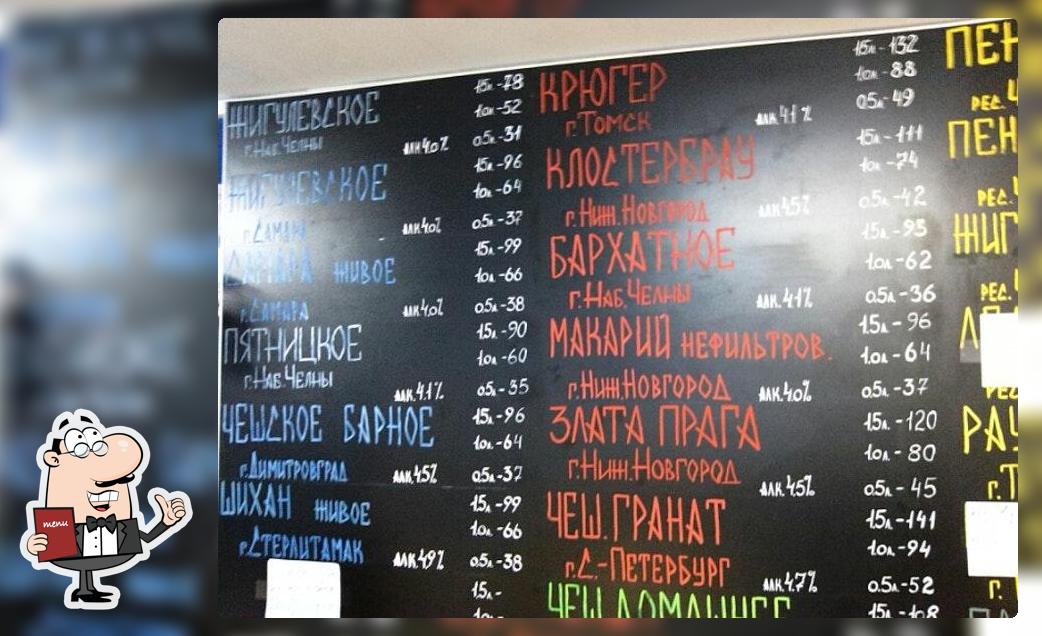 ЖИГУЛЕВСКОЕ
г.Наб.Челны
алк 4.0%
1.5л.-78
1.0л.-52
0.5л.-31
ЖИГУЛЕВСКОЕ
г.Самара
алк 4.0%
1.5л.-96
1.0л.-64
0.5л.-37
САМАРА ЖИВОЕ
г.Самара
алк 4.0%
1.5л.-99
1.0л.-66
0.5л.-38
ПЯТНИЦКОЕ
г.Наб.Челны
алк.4.1%
1.5л.-90
1.0л.-60
0.5л.-35
ЧЕШСКОЕ БАРНОЕ
г.Димитровград
алк.4.5%
1.5л.-96
1.0л.-64
0.5л.-37
ШИХАН ЖИВОЕ
г.Стерлитамак
алк.4.9%
1.5л.-99
1.0л.-66
0.5л.-38
1.5л.-
КРЮГЕР
г.Томск
алк.4.1%
1.5л-132
1.0л.-88
0.5л-49
КЛОСТЕРБРАУ
г.Ниж.Новгород
алк.4.5%
1.5л-111
1.0л.-74
0.5л-42
БАРХАТНОЕ
г.Наб.Челны
алк.4.1%
1.5л-93
1.0л-62
0.5л-36
МАКАРИЙ НЕФИЛЬТРОВ.
г.Ниж.Новгород
алк.4.0%
1.5л-96
1.0л-64
0.5л-37
ЗЛАТА ПРАГА
г.Ниж.Новгород
алк.4.5%
1.5л-120
1.0л-80
0.5л-45
ЧЕШ.ГРАНАТ
г.С.-Петербург
алк.4.7%
1.5л-141
1.0л-94
0.5л-52
ЧЕШ.ДОМАШНЕЕ
1.5л-108
ПЕН
РЕС.
ПЕН
РЕС.
ЖИГ
РЕС.
РАУ
г.Т
menu